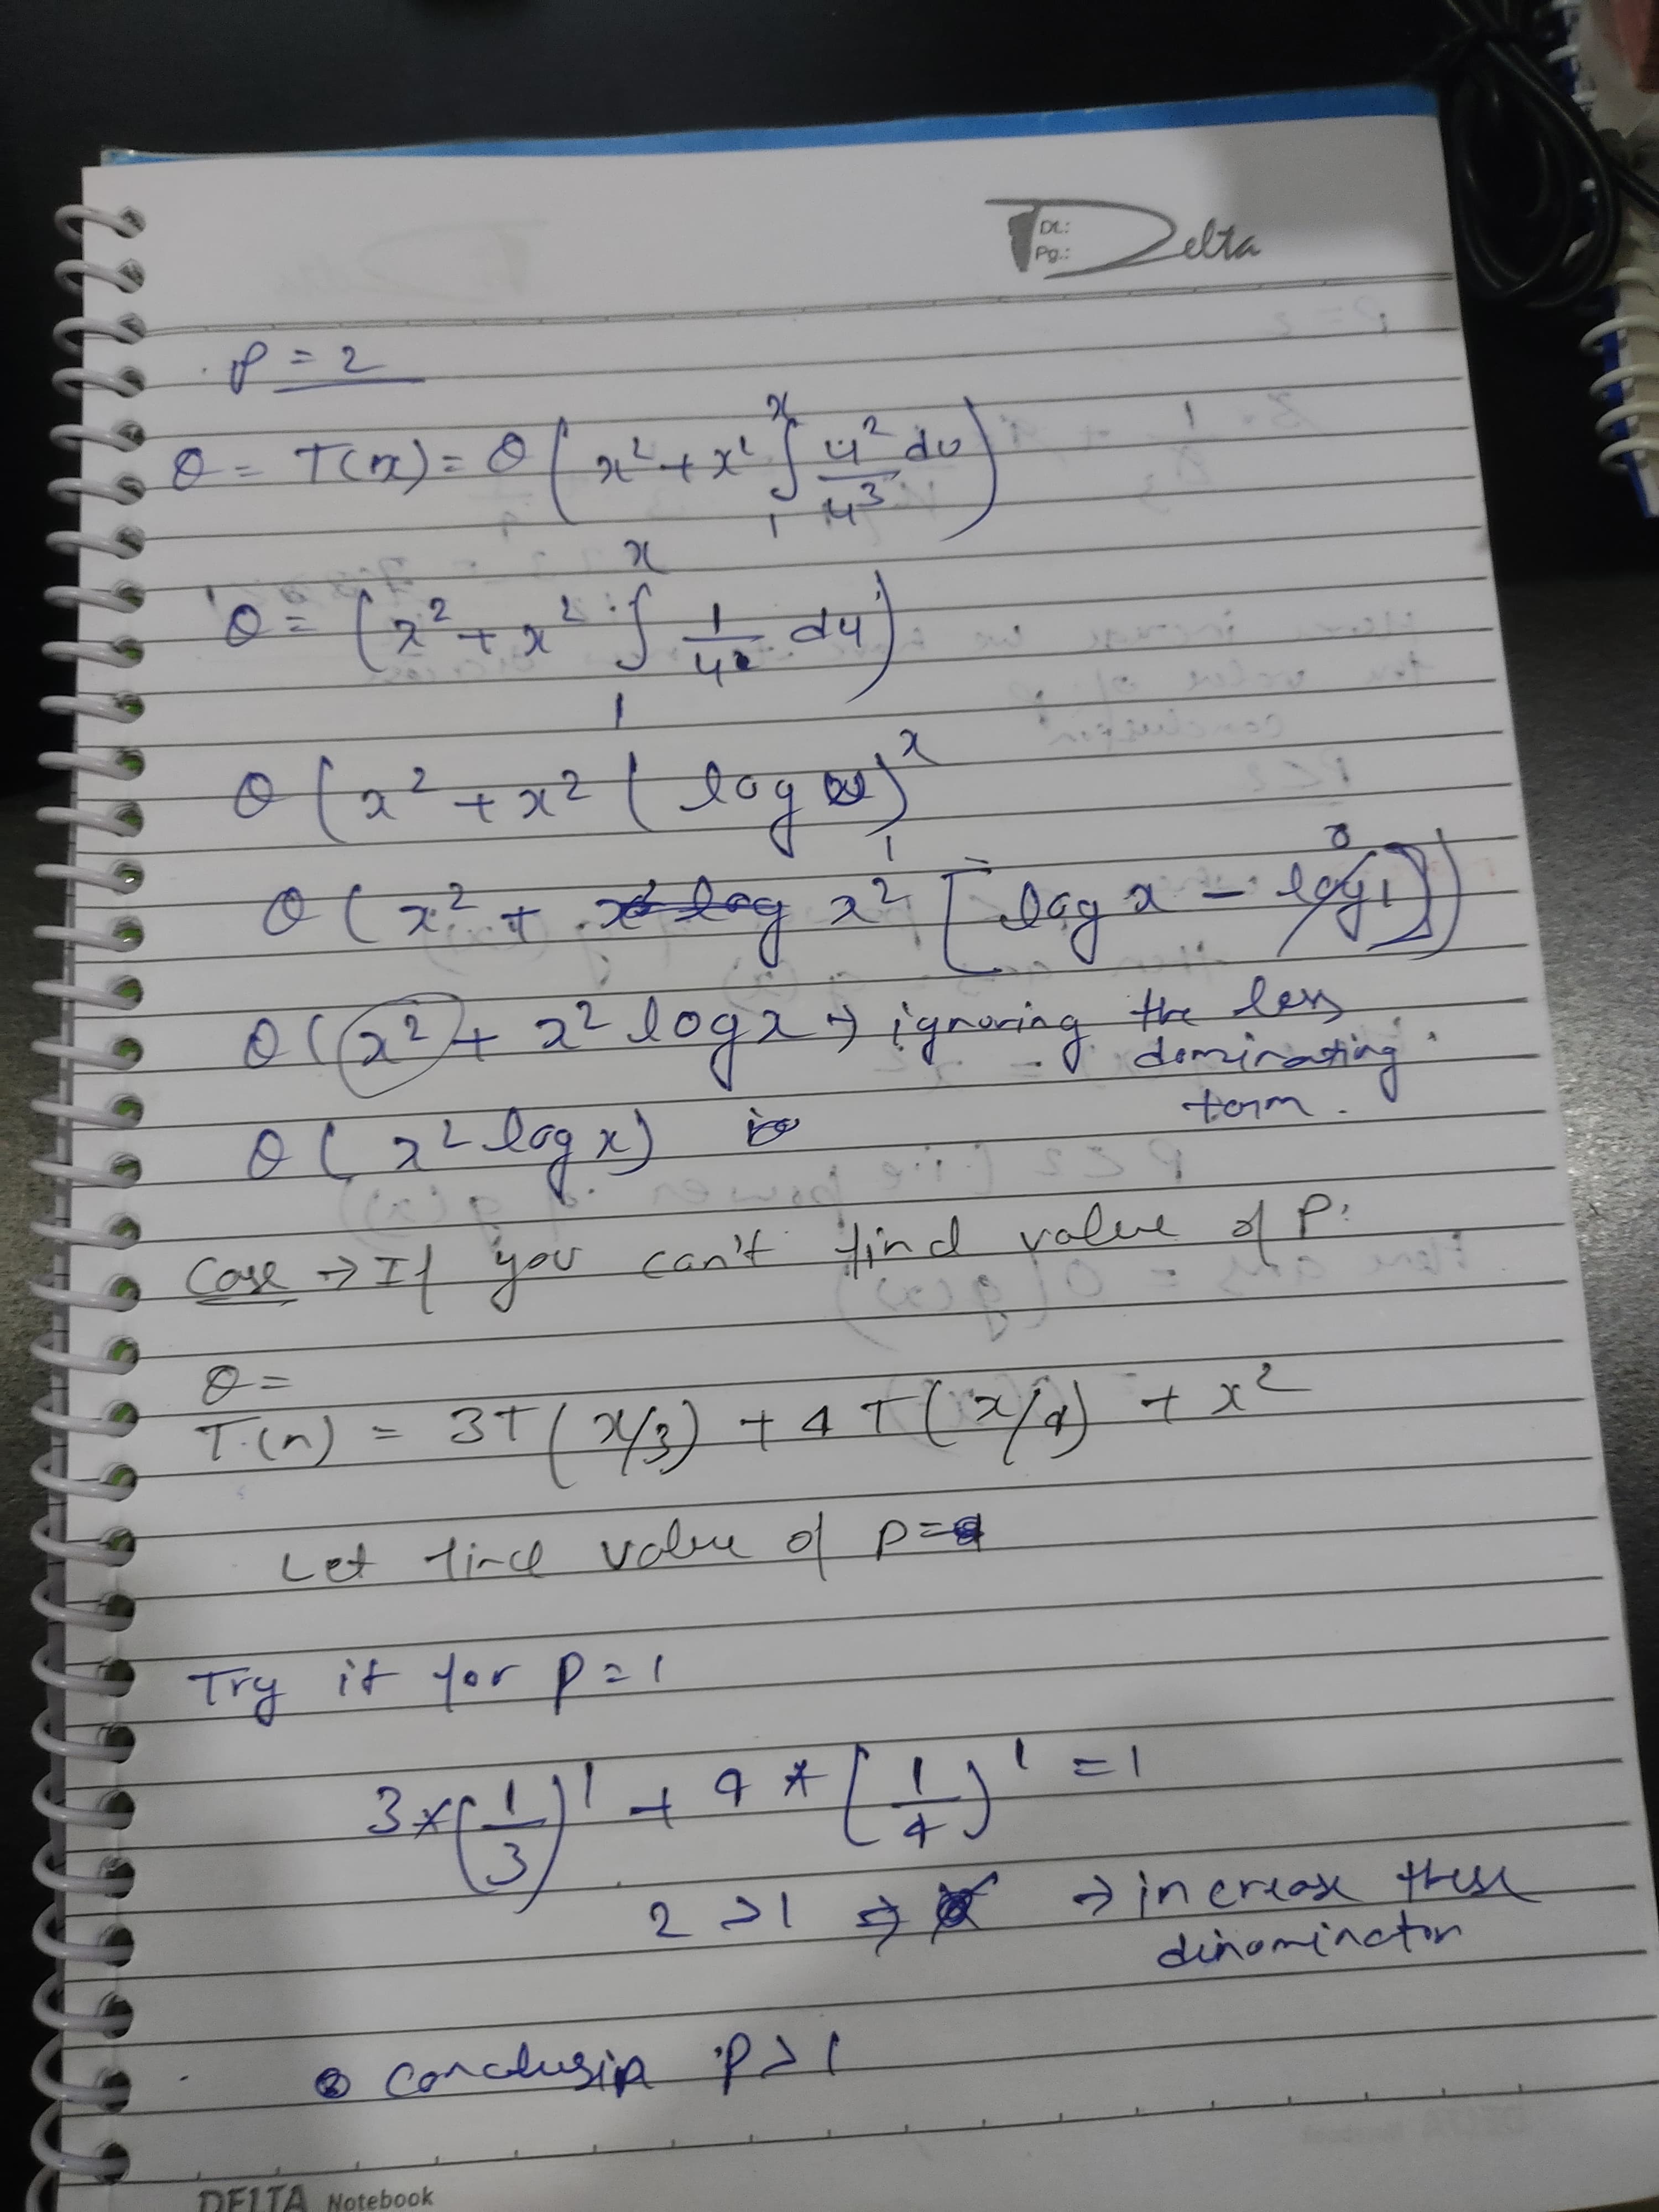 Dt.:
Pg.:
Delta
P = 2
θ = T(x) = θ ( x² + x² ∫₁ˣ u²/u³ du )
θ = ( x² + x² ∫₁ˣ 1/u du )
θ ( x² + x² ( log u )₁ˣ
θ ( x² + x² [ log x - log 1 ] ) 0
θ ( x² + x² log x → ignoring the less
dominating
term.
θ ( x² log x )
Case → If you can't find value of P:
θ =
T(n) = 3T ( x/3 ) + 4T ( x/4 ) + x²
Let find value of p =
Try it for p = 1
3 * ( 1/3 )¹ + 4 * ( 1/4 )¹ = 1
2 > 1 ⇒ → increase these
dinominator
conclusin P > 1
DELTA Notebook